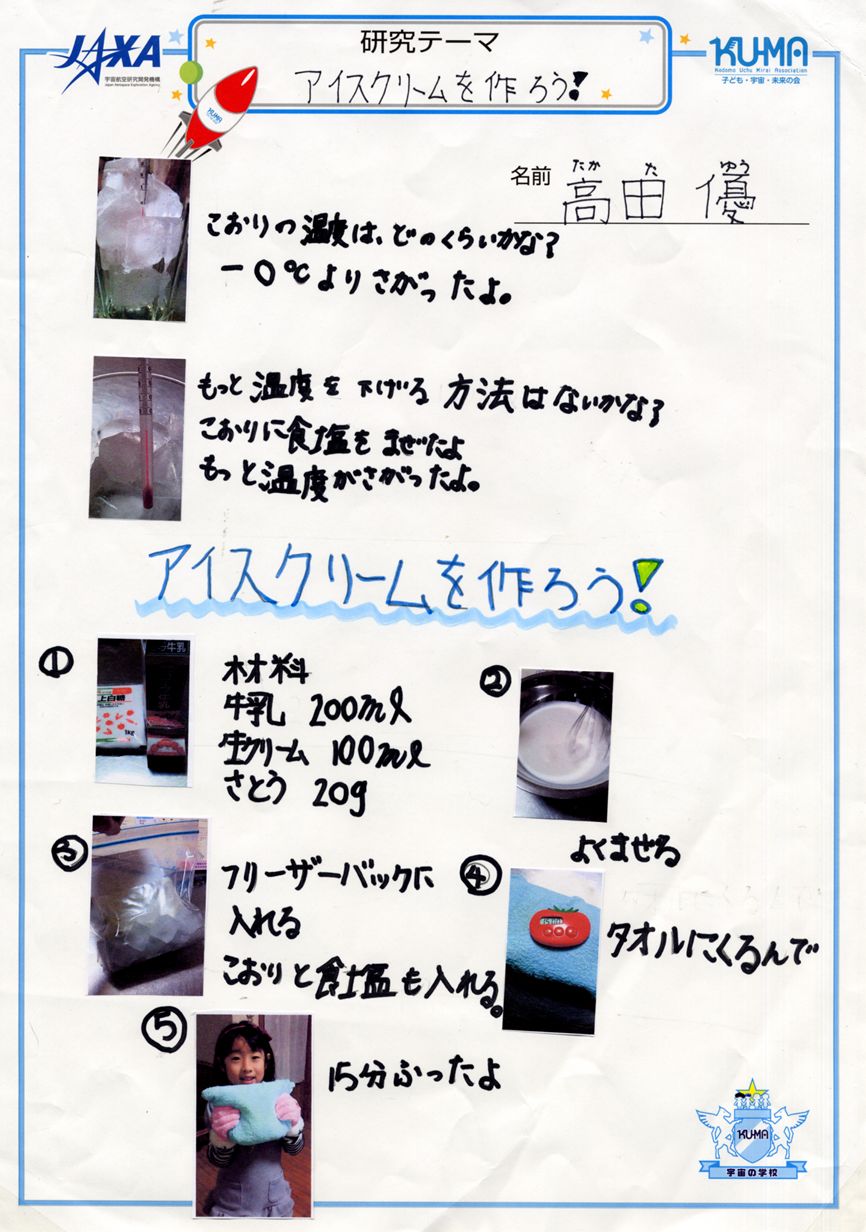 JAXA
宇宙航空研究開発機構
Japan Aerospace Exploration Agency
研究テーマ
アイスクリームを作ろう!
KU-MA
Kodomo Uchu Mirai Association
子ども・宇宙・未来の会
KU-MA
名前 高田 優
たか た ゆう
こおりの温度は、どのくらいかな?
-0℃よりさがったよ。
もっと温度を下げる方法はないかな?
こおりに食塩をまぜたよ
もっと温度がさがったよ。
アイスクリームを作ろう!
①
牛乳
上白糖
1kg
材料
牛乳 200ml
生クリーム 100ml
さとう 20g
②
よくまぜる
③
フリーザーバックに
入れる
こおりと食塩も入れる。
④
15:00
タオルにくるんで
⑤
15分ふったよ
KU-MA
宇宙の学校